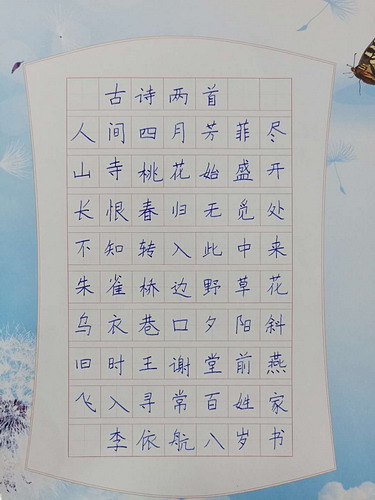 古诗两首
人间四月芳菲尽
山寺桃花始盛开
长恨春归无觅处
不知转入此中来
朱雀桥边野草花
乌衣巷口夕阳斜
旧时王谢堂前燕
飞入寻常百姓家
李依航八岁书